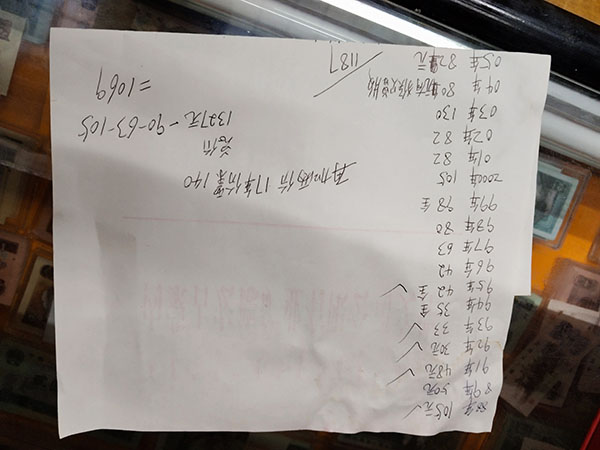 88年 105元 ✓
89年 50元
91年 48元 ✓
92年 30元 ✓
93年 33 ✓
94年 35 全
95年 42 全 ✓
96年 42
97年 63
98年 80
99年 98 全
2000年 105
01年 82
02年 82
03年 130
04年 80
05年 82元
1187
再加两份17年
140
总价
1327元-90-63-105
=1069